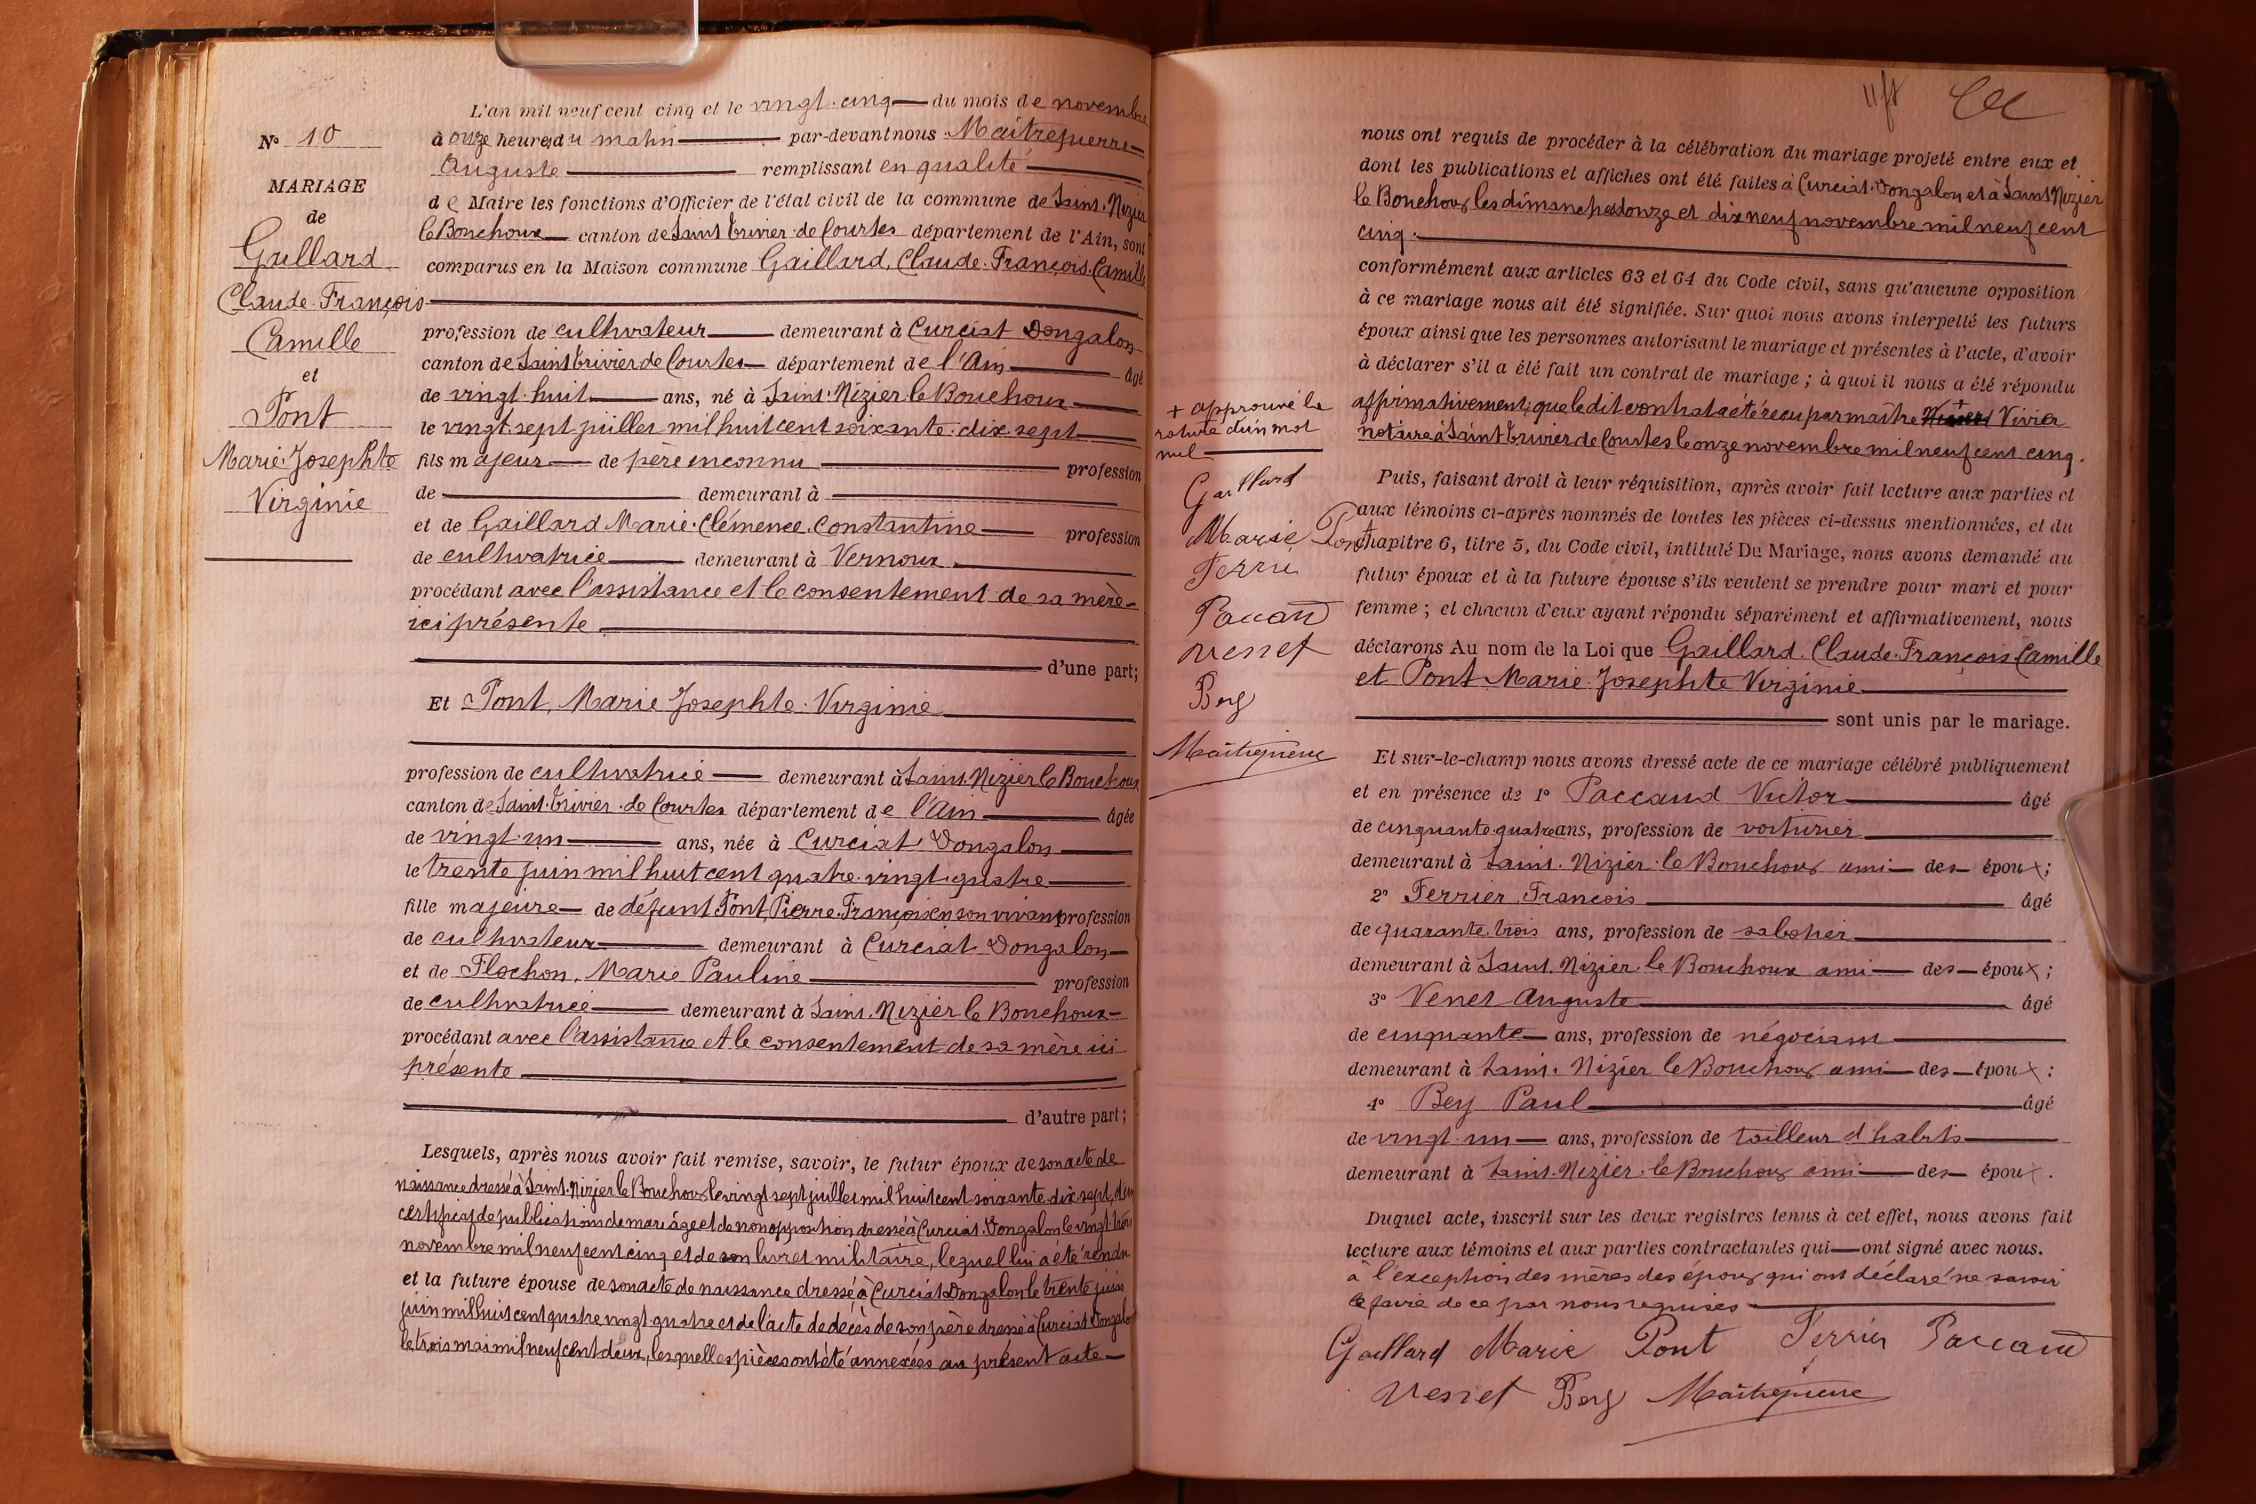 N° 10
MARIAGE
de
Gaillard
Claude-François
Camille
et
Pont
Marie-Josephte
Virginie
L'an mil neuf cent cinq et le vingt-cinq du mois de novembre
à onze heures du matin par-devant nous Maîtrepierre
Auguste remplissant en qualité
de Maire les fonctions d'Officier de l'état civil de la commune de Saint-Nizier
le Bouchoux canton de Saint Trivier-de Courtes département de l'Ain, sont
comparus en la Maison commune Gaillard, Claude-François-Camille
profession de cultivateur demeurant à Curciat Dongalon
canton de Saint Trivier de Courtes département de l'Ain âgé
de vingt-huit ans, né à Saint-Nizier-le Bouchoux
le vingt-sept juillet mil huit cent soixante-dix sept
fils majeur de père inconnu profession
de demeurant à
et de Gaillard Marie-Clémence-Constantine profession
de cultivatrice demeurant à Vernoux
procédant avec l'assistance et le consentement de sa mère
ici présente
d'une part;
Et Pont, Marie Josephte-Virginie
profession de cultivatrice demeurant à Saint-Nizier le Bouchoux
canton de Saint-Trivier-de Courtes département de l'Ain âgée
de vingt-un ans, née à Curciat Dongalon
le trente juin mil huit cent quatre-vingt-quatre
fille majeure de défunt Pont, Pierre-François en son vivant profession
de cultivateur demeurant à Curciat Dongalon
et de Flochon, Marie Pauline profession
de cultivatrice demeurant à Saint-Nizier le Bouchoux
procédant avec l'assistance et le consentement de sa mère ici
présente
d'autre part;
Lesquels, après nous avoir fait remise, savoir, le futur époux de son acte de
naissance dressé à Saint-Nizier le Bouchoux le vingt sept juillet mil huit cent soixante-dix sept, d'un
certificat de publications de mariage et de non opposition dressé à Curciat-Dongalon le vingt trois
novembre mil neuf cent cinq et de son livret militaire, lequel lui a été rendu
et la future épouse de son acte de naissance dressé à Curciat Dongalon le trente juin
juin mil huit cent quatre vingt-quatre et de l'acte de décès de son père dressé à Curciat Dongalon
le trois mai mil neuf cent deux, lesquelles pièces ont été annexées au présent acte
nous ont requis de procéder à la célébration du mariage projeté entre eux et
dont les publications et affiches ont été faites à Curciat-Dongalon et à Saint Nizier
le Bouchoux les dimanches douze et dix neuf novembre mil neuf cent
cinq.
conformément aux articles 63 et 64 du Code civil, sans qu'aucune opposition
à ce mariage nous ait été signifiée. Sur quoi nous avons interpellé les futurs
époux ainsi que les personnes autorisant le mariage et présentes à l'acte, d'avoir
à déclarer s'il a été fait un contrat de mariage; à quoi il nous a été répondu
affirmativement, que le dit contrat a été reçu par maître + Vivier
notaire à Saint Trivier de Courtes le onze novembre mil neuf cent cinq.
Puis, faisant droit à leur réquisition, après avoir fait lecture aux parties et
aux témoins ci-après nommés de toutes les pièces ci-dessus mentionnées, et du
chapitre 6, titre 5, du Code civil, intitulé Du Mariage, nous avons demandé au
futur époux et à la future épouse s'ils veulent se prendre pour mari et pour
femme; et chacun d'eux ayant répondu séparément et affirmativement, nous
déclarons Au nom de la Loi que Gaillard-Claude-François-Camille
et Pont Marie-Josephte Virginie
sont unis par le mariage.
Et sur-le-champ nous avons dressé acte de ce mariage célébré publiquement
et en présence de 1° Paccaud Victor âgé
de cinquante-quatre ans, profession de voiturier
demeurant à Saint-Nizier-le Bouchoux ami des époux;
2° Ferrier François âgé
de quarante-trois ans, profession de sabotier
demeurant à Saint-Nizier-le Bouchoux ami des époux;
3° Venet Auguste âgé
de cinquante ans, profession de négociant
demeurant à Saint-Nizier le Bouchoux ami des époux:
4° Bey Paul âgé
de vingt-un ans, profession de tailleur d'habits
demeurant à Saint-Nizier-le Bouchoux ami des époux.
Duquel acte, inscrit sur les deux registres tenus à cet effet, nous avons fait
lecture aux témoins et aux parties contractantes qui ont signé avec nous.
à l'exception des mères des époux qui ont déclaré ne savoir
le faire de ce par nous requises
Gaillard Marie Pont Ferrier Paccaud
Venet Bey Maîtrepierre
+ approuvé la
rature d'un mot
nul
Gaillard
Marie Pont
Ferrier
Paccaud
Venet
Bey
Maîtrepierre